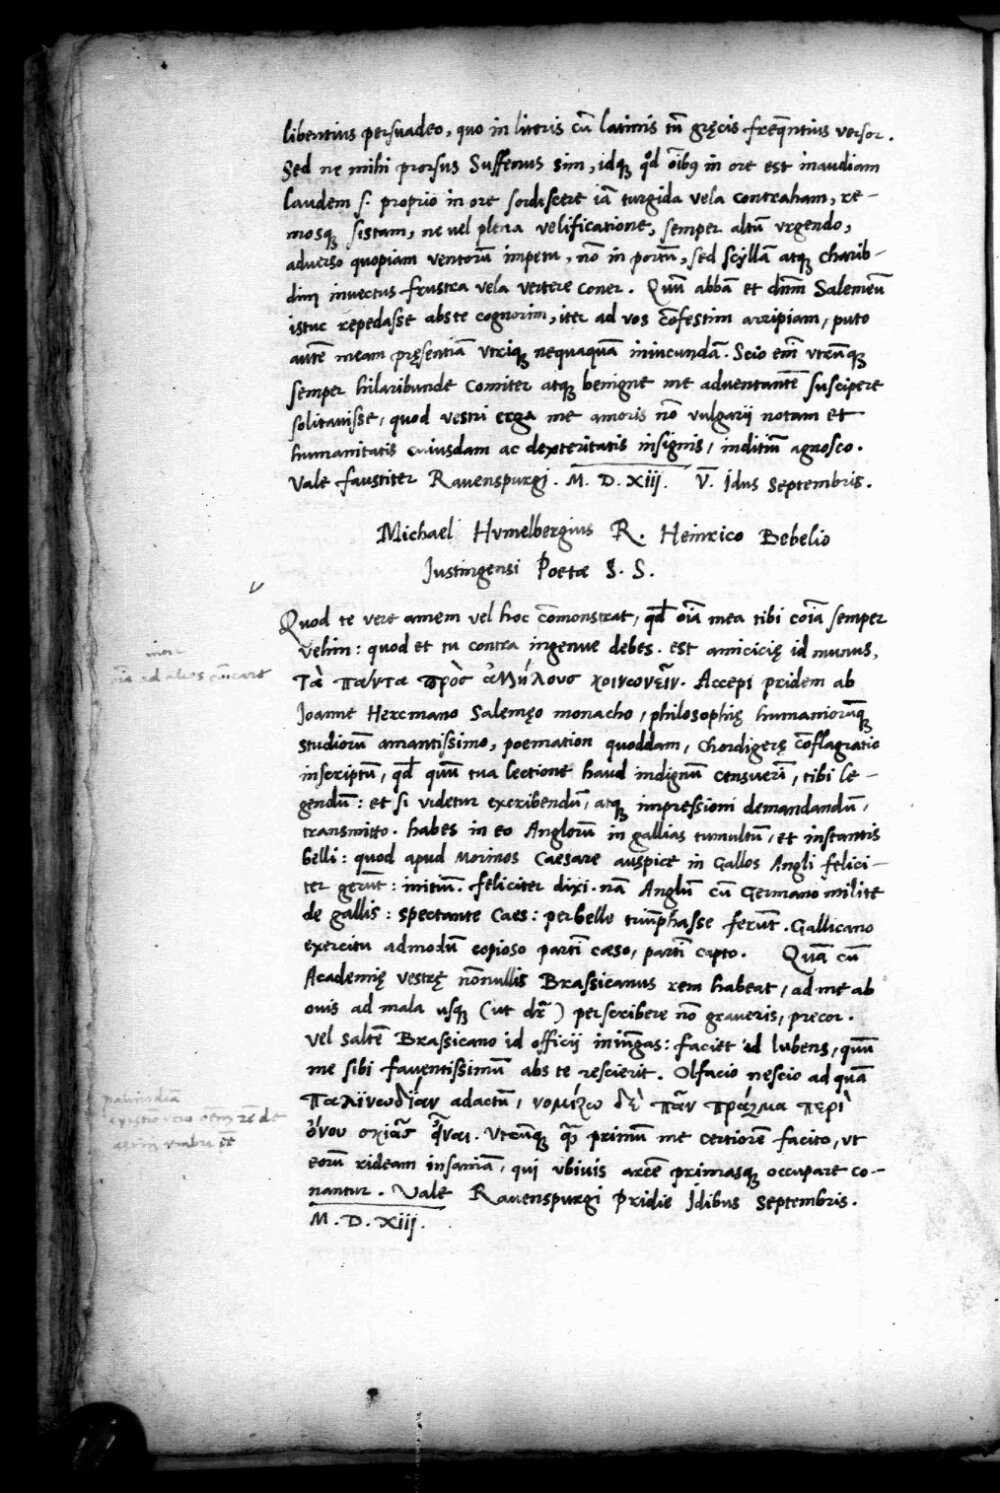 libentius persuadeo, quo in literis cū latinis tū gręcis freq̄ntius versor.
Sed ne mihi prorsus Suffenus sim, idq̨ qd̄ oībꝰ in ore est inaudiam
laudem s. proprio in ore sordiscere iā turgida vela contraham, re-
mosq̨ sistam, ne vel plena velificatione, semper altū vrgendo,
adverso quopiam ventorū impetu, nō in portū, sed scyllā atq̨ charib-
dim invectus frustra vela vertere coner. Quū abbā et dn̄m Salemēū
istuc repedasse abs te cognorim, iter ad vos cōfestim arripiam, puto
autē meam pręsentiā vtriq̨ nequaquā iniucundā. Scio em̄ vtrūq̨
semper hilaribunde comiter atq̨ benigne me adventantē suscipere
solitavisse, quod vestri erga me amoris nō vulgarij notam et
humanitatis cuiusdam ac dexteritatis insignis, inditiū agnosco.
Vale faustiter Ravenspurgi. M. D. XIII. V. Idus Septembris.
Michael Hvmelbergius R. Heinrico Bebelio
Justingensi Poetæ S. S.
Quod te vere amem vel hoc cōmonstrat, qd̄ oīa mea tibi coīa semper
velim: quod et tu contra ingenue debes. est amicicię id munus,
Τὰ πάντα πρὸς ἀλλήλους χοινωνεῖν. Accepi pridem ab
Joanne Hercmano Salemęo monacho, philosophię humaniorūq̨
studiorū amantissimo, poemation quoddam, Chordigerę cōflagratio
inscriptū, qd̄ quū tua lectione haud indignū censuerī, tibi le-
gendū: et si videtur exeribendū, atq̨ impressioni demandandū,
transmitto. habes in eo Anglorū in gallias tumultū, et instantis
belli: quod apud Morinos Caesare auspice in Gallos Angli felici-
ter gerūt: initiū. feliciter dixi. nā Anglū cū Germano milite
de gallis: spectante Caes: perbelle triūphasse ferūt. Gallicano
exercitu admodū copioso partī cæso, partī capto. Quā cū
Academię vestrę nōnullis Brassicanus rem habeat, ad me ab
ovis ad mala usq̨ (ut dr̄) perscribere nō graveris, precor.
vel saltē Brassicano id officij iniūgas: faciet id lubens, quū
me sibi faventissimū abs te rescierit. Olfacio nescio ad quā
παλινωδίαν adactū, νομίζω δὲ πᾶν πράγμα περὶ
ὄνου σκιᾶς εἶναι. Vtcūq̨ q̄ primū me certiorē facito, vt
eorū rideam insaniā, qui vbivis arcē primasq̨ occupare co-
nantur. Vale Ravenspurgi Pridie Idibus Septembris.
M. D. XIII.